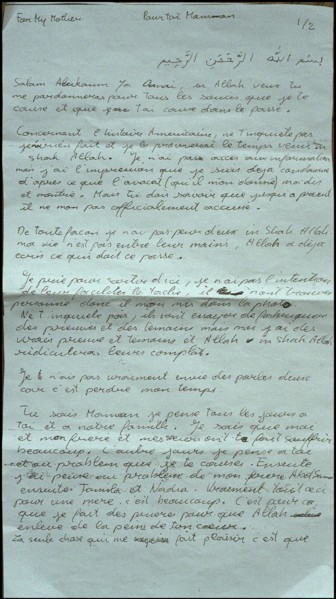 For My Mother Pour toi Mamman 1/2
بسم الله الرحمن الرحيم
Salam Aleikoum Ya Oumi, in Allah veux tu
me pardonneras pour tous les soucis que je te
cause et que j'ai causé dans le passé.
Concernant l'histoire Americaine, ne t'inquiète pas
je n'ai rien fait et je le prouverai le temps venu in
shah Allah. Je n'ai pas acces aux information
mais j'ai l'impression que je suis deja condamné
d'après ce que l'avocat (qu'il mon donné) ma dis
et montré. Mais tu dois savoir que jusqu'a present
il ne mon pas officiellement accusé.
De toute façon je n'ai pas peur d'eux in Shah Allah
ma vie n'est pas entre leur mains, Allah a déjà
ecris ce qui doit ce passé.
Je prie pour sortir d'ici, je n'ai pas l'intention
de leurs faciliter la tache. il n'ont trouver
personne donc il mon mis dans la photo
Ne t'inquiete pas, ils vont essayer de fabriquer
des preuves et des temoins mais moi j'ai des
vrais preuve et temoins et Allah in shah Allah
ridiculisera leurs complots.
Je n'ais pas vraiment envie des parler d'eux
car c'est perdre mon temps
Tu sais Mamman je pense tous les jours a
toi et a notre famille. Je sais que moi
et mon frere et mes soeurs ont te fait souffrir
beaucoup. L'autre jours je pense a toi
et au problem que je te causes. Ensuite
j'ai pensé au probleme de mon frere Abd Samad
ensuite Jamila et Nadia. Vraiment tout ceci
pour une mere c'est beaucoup. C'est pour ca
que je fait des prieres pour que Allah
enleve de la peine de ton coeur.
La seule chose qui me fait plaisir c'est que